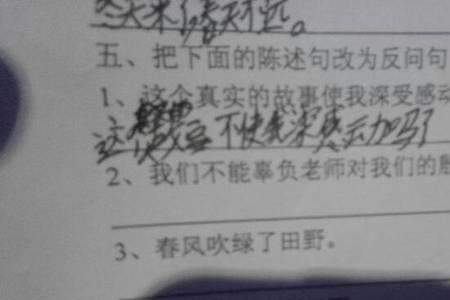 冬天来了春天不远。
五、把下面的陈述句改为反问句
1、这个真实的故事使我深受感动
这 不使我深感动吗
2、我们不能辜负老师对我们的
3、春风吹绿了田野。